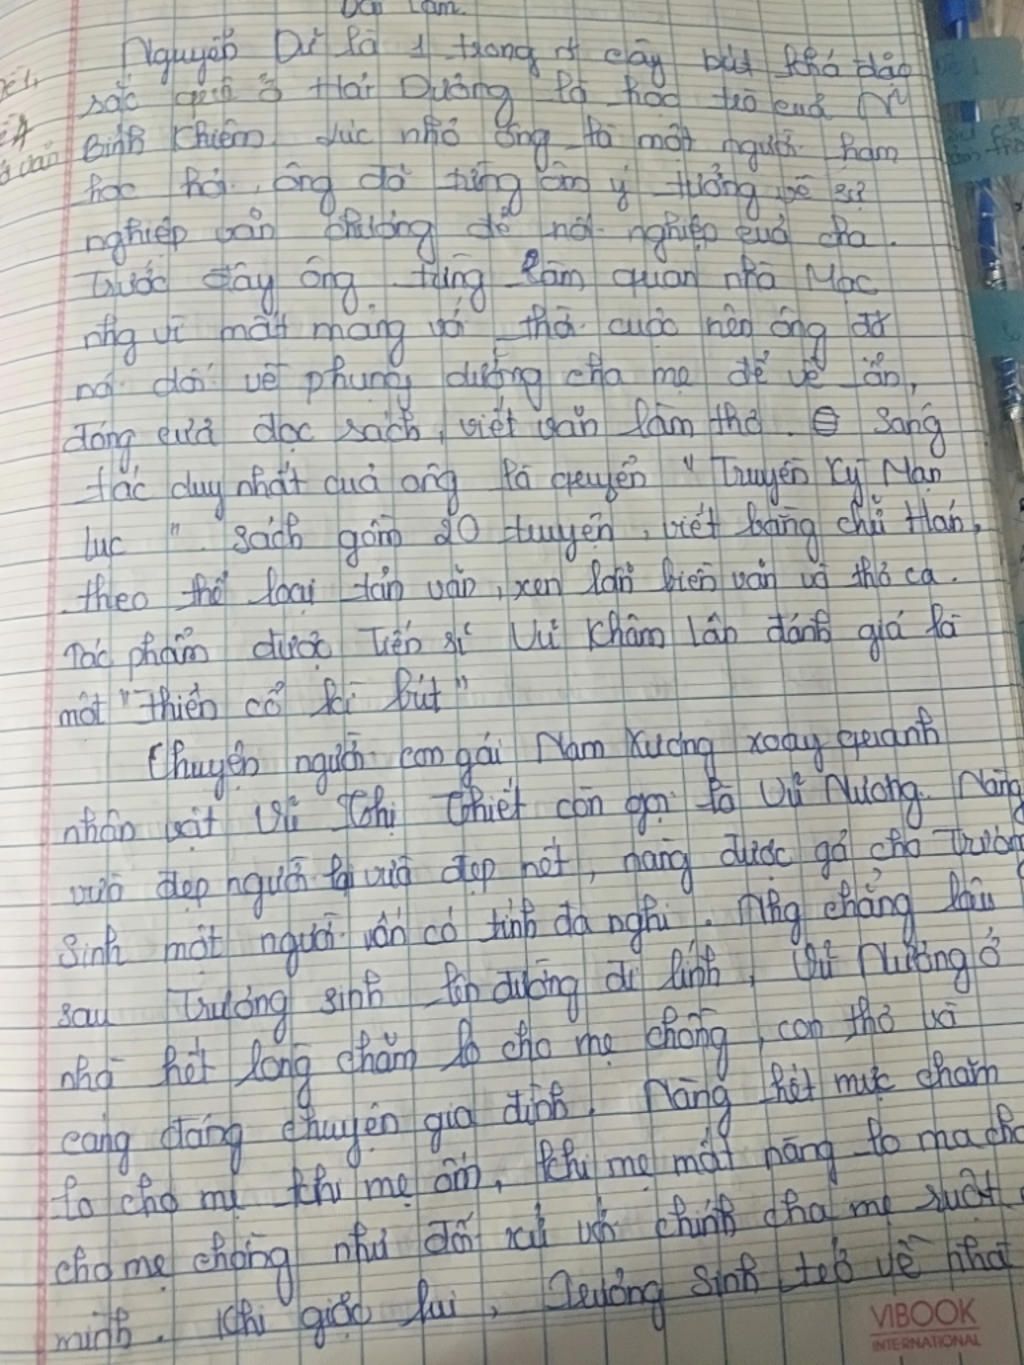 Bài Làm
Nguyễn Dữ là 1 trong cây bút khá đảo
sắc quê ở Hải Dương là học trò của
Bỉnh Khiêm lúc nhỏ ông là một người ham
học hỏi, ông đã từng ôm ý tưởng về sự
nghiệp văn chương để nối nghiệp của cha.
Trước đây ông từng làm quan nhà Mạc
nhg vì mất mang với thời cuộc nên ông đã
nói dối về phụng dưỡng cha mẹ để về ẩn,
đóng cửa đọc sách, viết văn làm thơ. Sáng
tác duy nhất của ông là quyển "Truyền Kỳ Mạn
lục" sách gồm 20 truyện, viết bằng chữ Hán,
theo thể loại tản văn, xen lẫn biền văn và thơ ca.
Tác phẩm được Tiến sĩ Vũ Khâm Lân đánh giá là
một "thiên cổ kì bút"
Chuyện người con gái Nam Xương xoay quanh
nhân vật Vũ Thị Thiết còn gọi là Vũ Nương. Nàng
vừa đẹp người lại vừa đẹp nết, nàng được gả cho Trương
Sinh một người vốn có tính đa nghi. Nhg chẳng lâu
sau Trương sinh lên đường đi lính, Vũ Nương ở
nhà hết lòng chăm lo cho mẹ chồng, con thơ và
cáng đáng chuyện gia đình. Nàng hết mực chăm
lo cho mẹ khi mẹ ốm, khi mẹ mất nàng lo ma chay
cho mẹ chồng như đối xử với chính cha mẹ ruột
mình. Khi giặc lui, Trương Sinh trở về nhà
VIBOOK
INTERNATIONAL